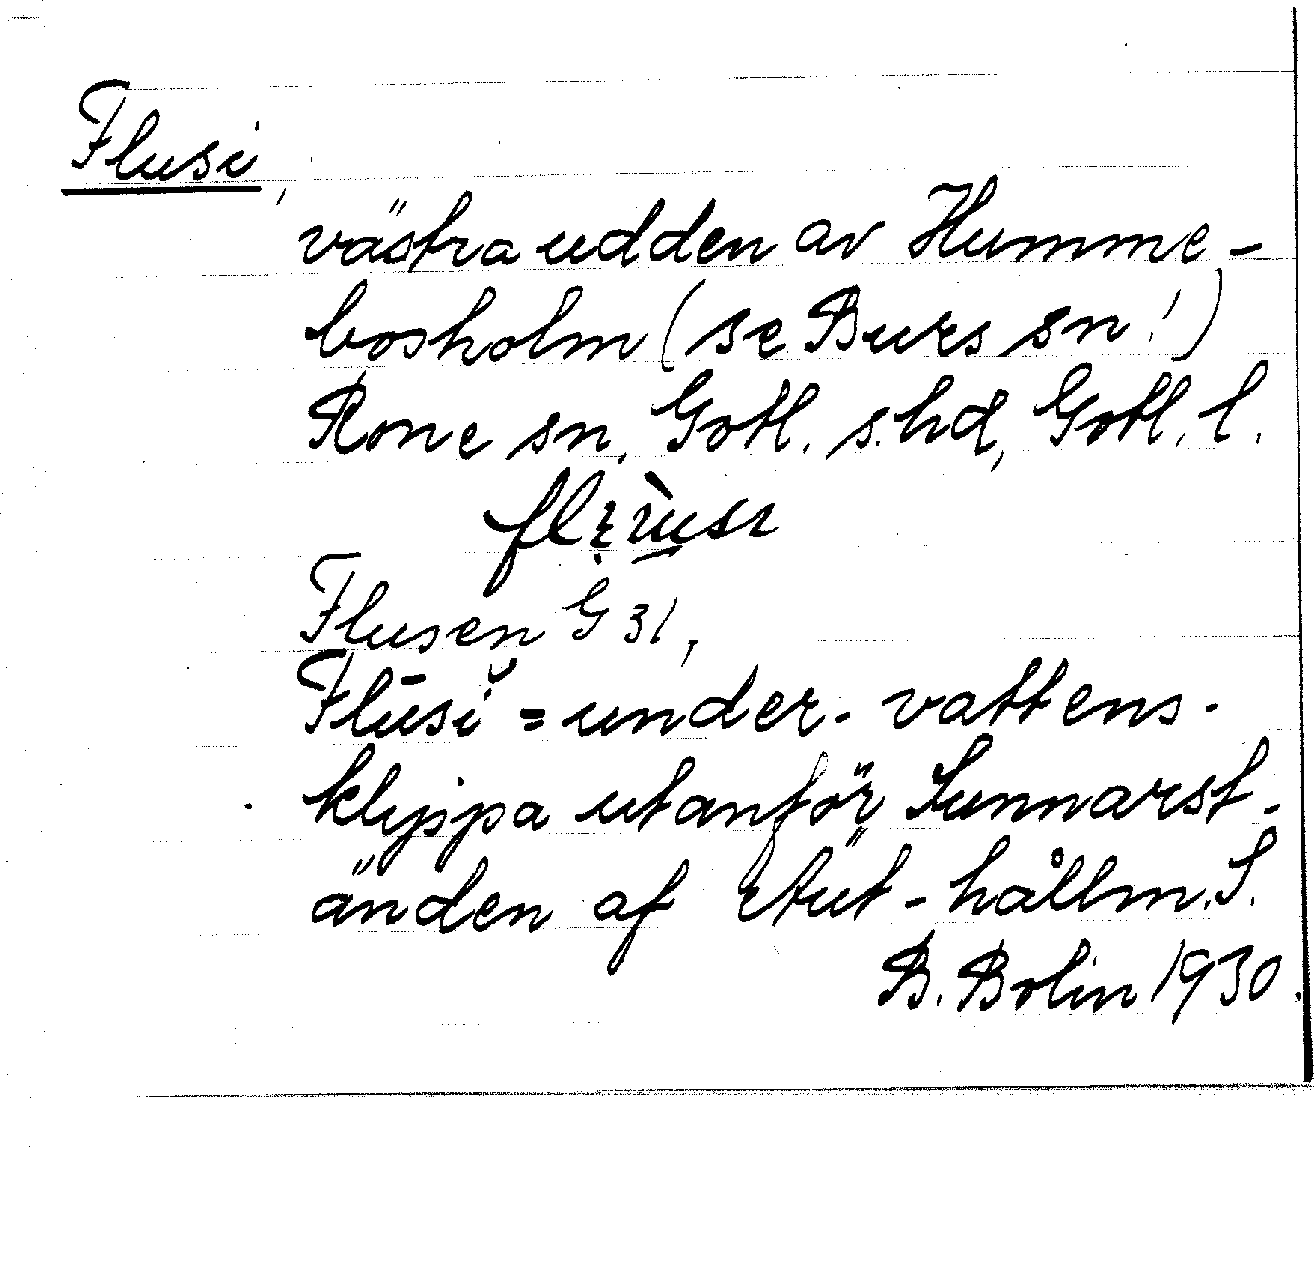 Flusi,
västra udden av Humme-
bosholm (se Burs sn!)
Rone sn, Gotl. s. hd, Gotl. l.
Flusen G 31,
Flūsĭ = under- vattens-
klyppa utanför Sunnarst-
änden af - hållm. S.
B. Bolin 1930.